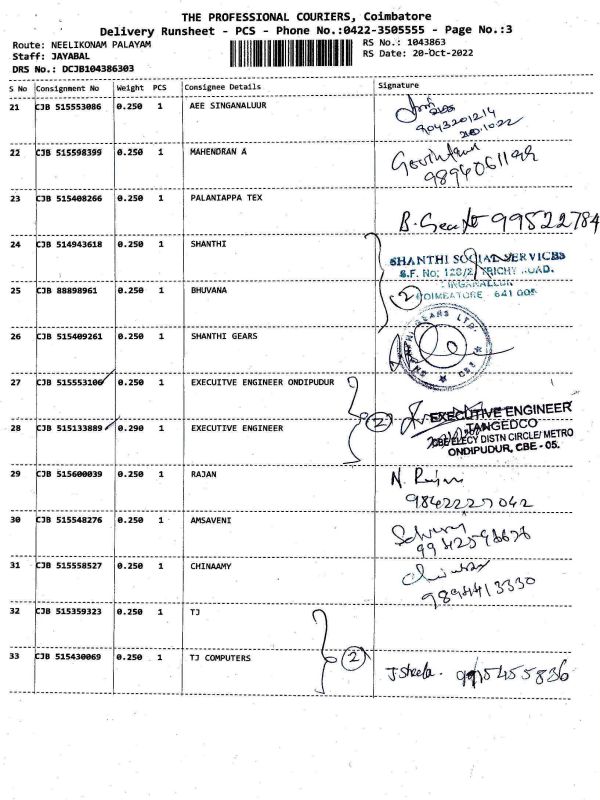 THE PROFESSIONAL COURIERS, Coimbatore
Delivery Runsheet - PCS - Phone No.:0422-3505555 - Page No.:3
Route: NEELIKONAM PALAYAM
RS No.: 1043863
Staff: JAYABAL
RS Date: 20-Oct-2022
DRS No.: DCJB104386303
S No Consignment No Weight PCS Consignee Details Signature
21 CJB 515553086 0.250 1 AEE SINGANALUUR
9043201214
22 CJB 515598399 0.250 1 MAHENDRAN A
23 CJB 515408266 0.250 1 PALANIAPPA TEX
99522784
24 CJB 514943618 0.250 1 SHANTHI
SHANTHI SOCIAL SERVICES
S.F. No; 128/2, TRICHY ROAD.
SINGANALLUR
COIMBATORE - 641 005
25 CJB 88898961 0.250 1 BHUVANA
2
26 CJB 515409261 0.250 1 SHANTHI GEARS
SHANTHI GEARS LTD.
27 CJB 515553100 0.250 1 EXECUITVE ENGINEER ONDIPUDUR
28 CJB 515133889 0.290 1 EXECUTIVE ENGINEER
2
EXECUTIVE ENGINEER
TANGEDCO
CBE/ELECY DISTN CIRCLE/ METRO
ONDIPUDUR, CBE - 05.
29 CJB 515600039 0.250 1 RAJAN
N. Rajan
9842227042
30 CJB 515548276 0.250 1 AMSAVENI
31 CJB 515558527 0.250 1 CHINAAMY
9894413330
32 CJB 515359323 0.250 1 TJ
33 CJB 515430069 0.250 1 TJ COMPUTERS
2
J Sheela.